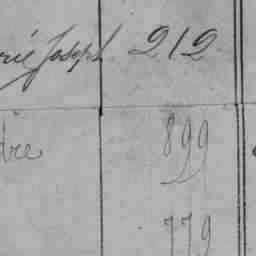 rie Joseph 212
dre 899
779